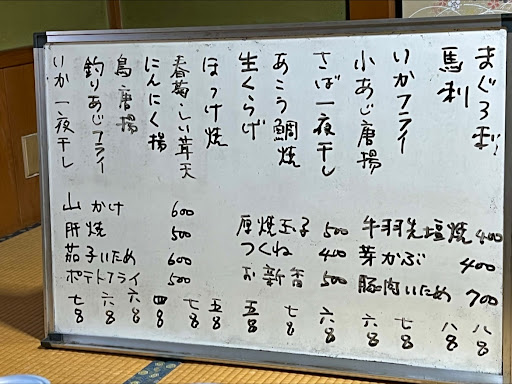 まぐろ刺 八00
馬刺 八00
いかフライ 七00
小あじ唐揚 六00
さば一夜干し 六00
あこう鯛焼 七00
生くらげ 五00
ほっけ焼 五00
春菊しい茸天 七00
にんにく揚 四00
鳥唐揚 六00
釣りあじフライ 六00
いか一夜干し 七00
手羽先塩焼 400
芽かぶ 400
豚肉いため 700
厚焼玉子 500
つくね 400
お新香 500
山かけ 600
肝焼 500
茄子いため 600
ポテトフライ 500